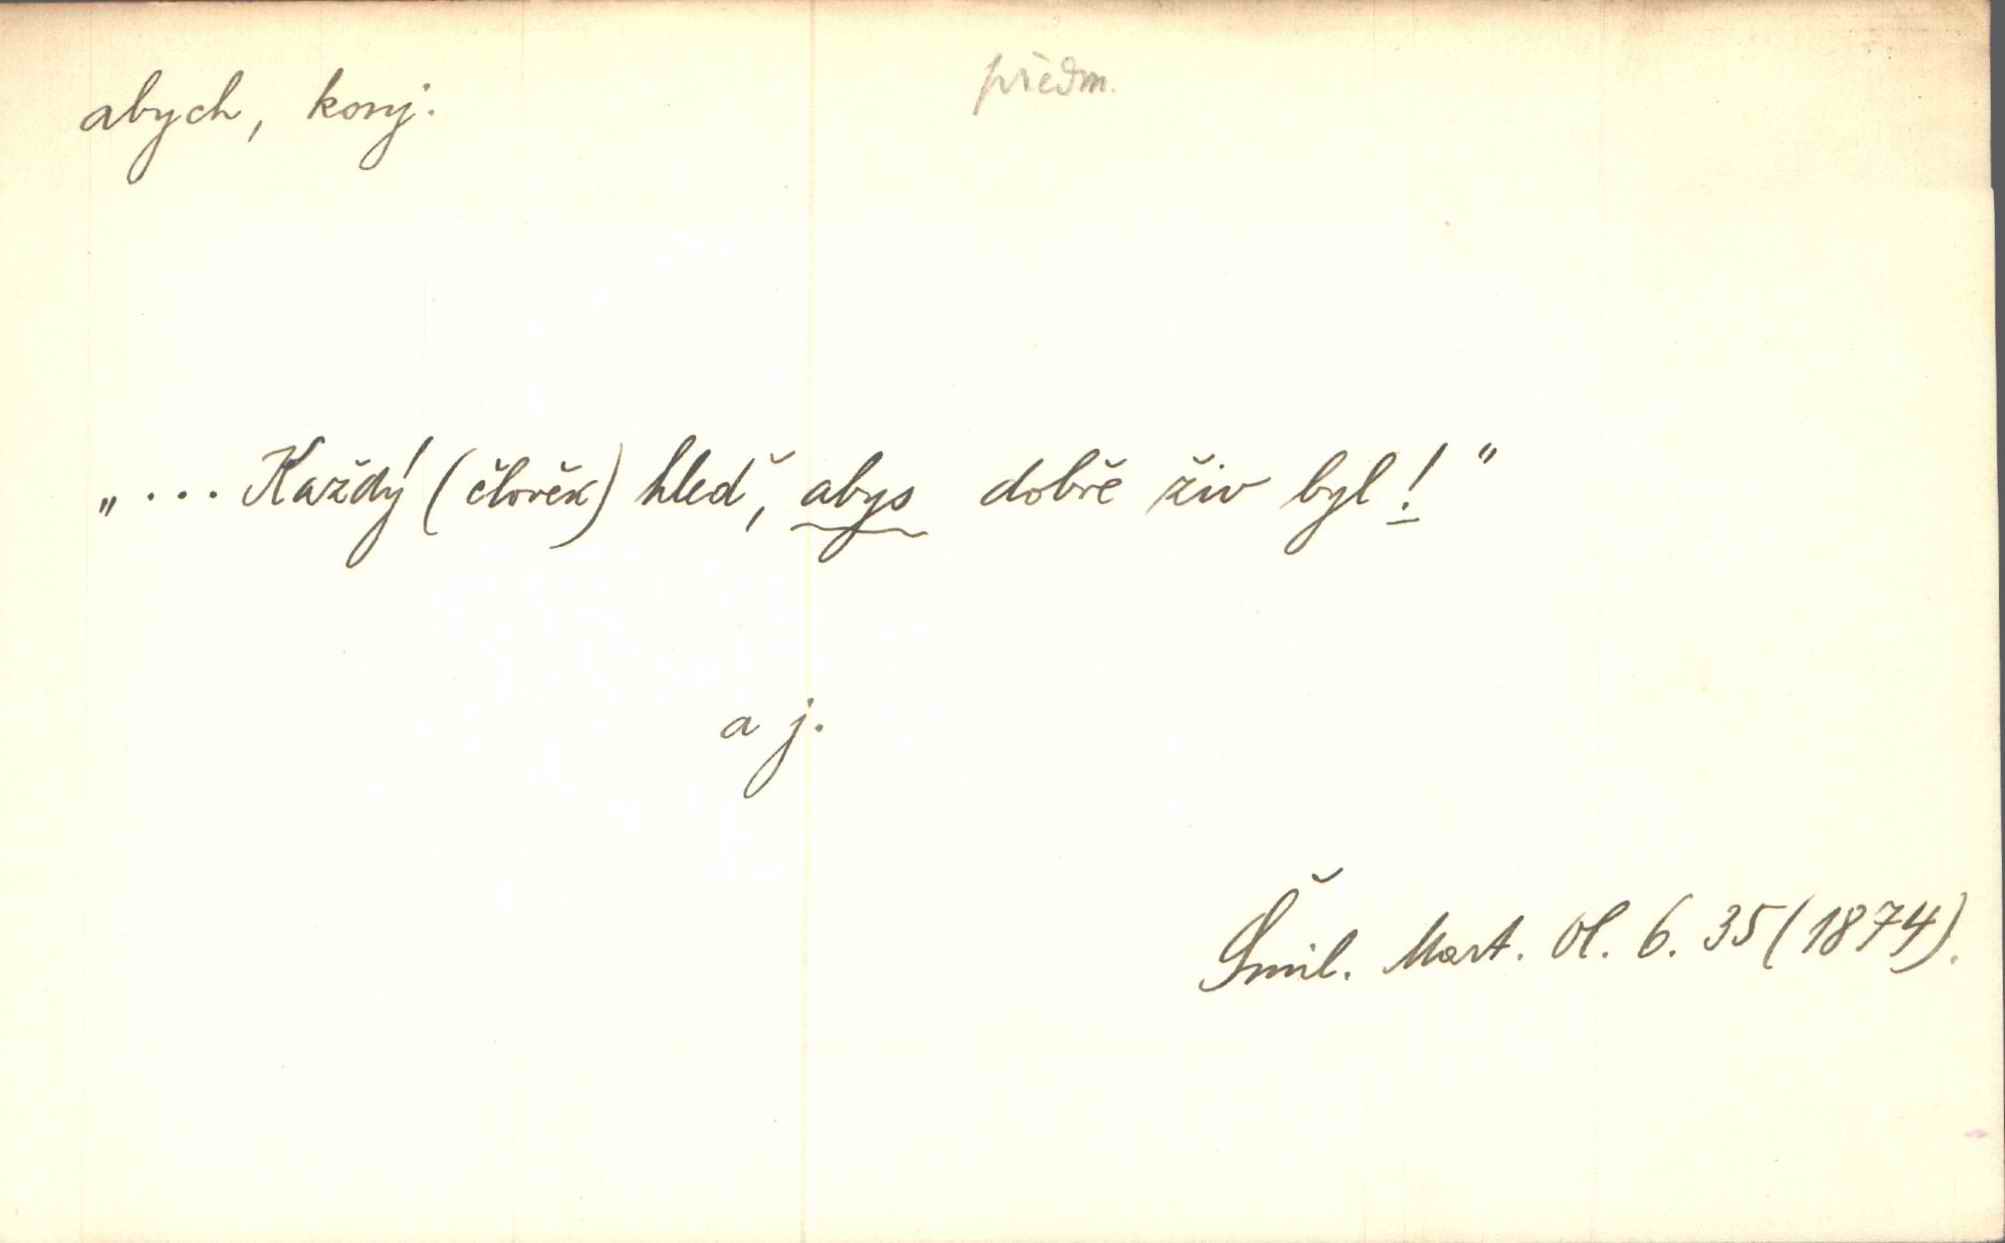 abych, konj.
předm.
„... Každý (člověk) hleď, abys dobře živ byl!“
a j.
Šmil. Mart. Ol. 6. 35 (1874).